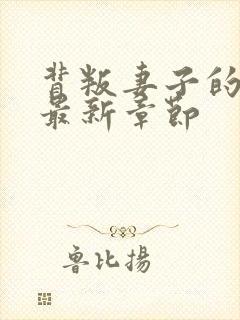 背叛妻子的
最新章节
鲁比揚